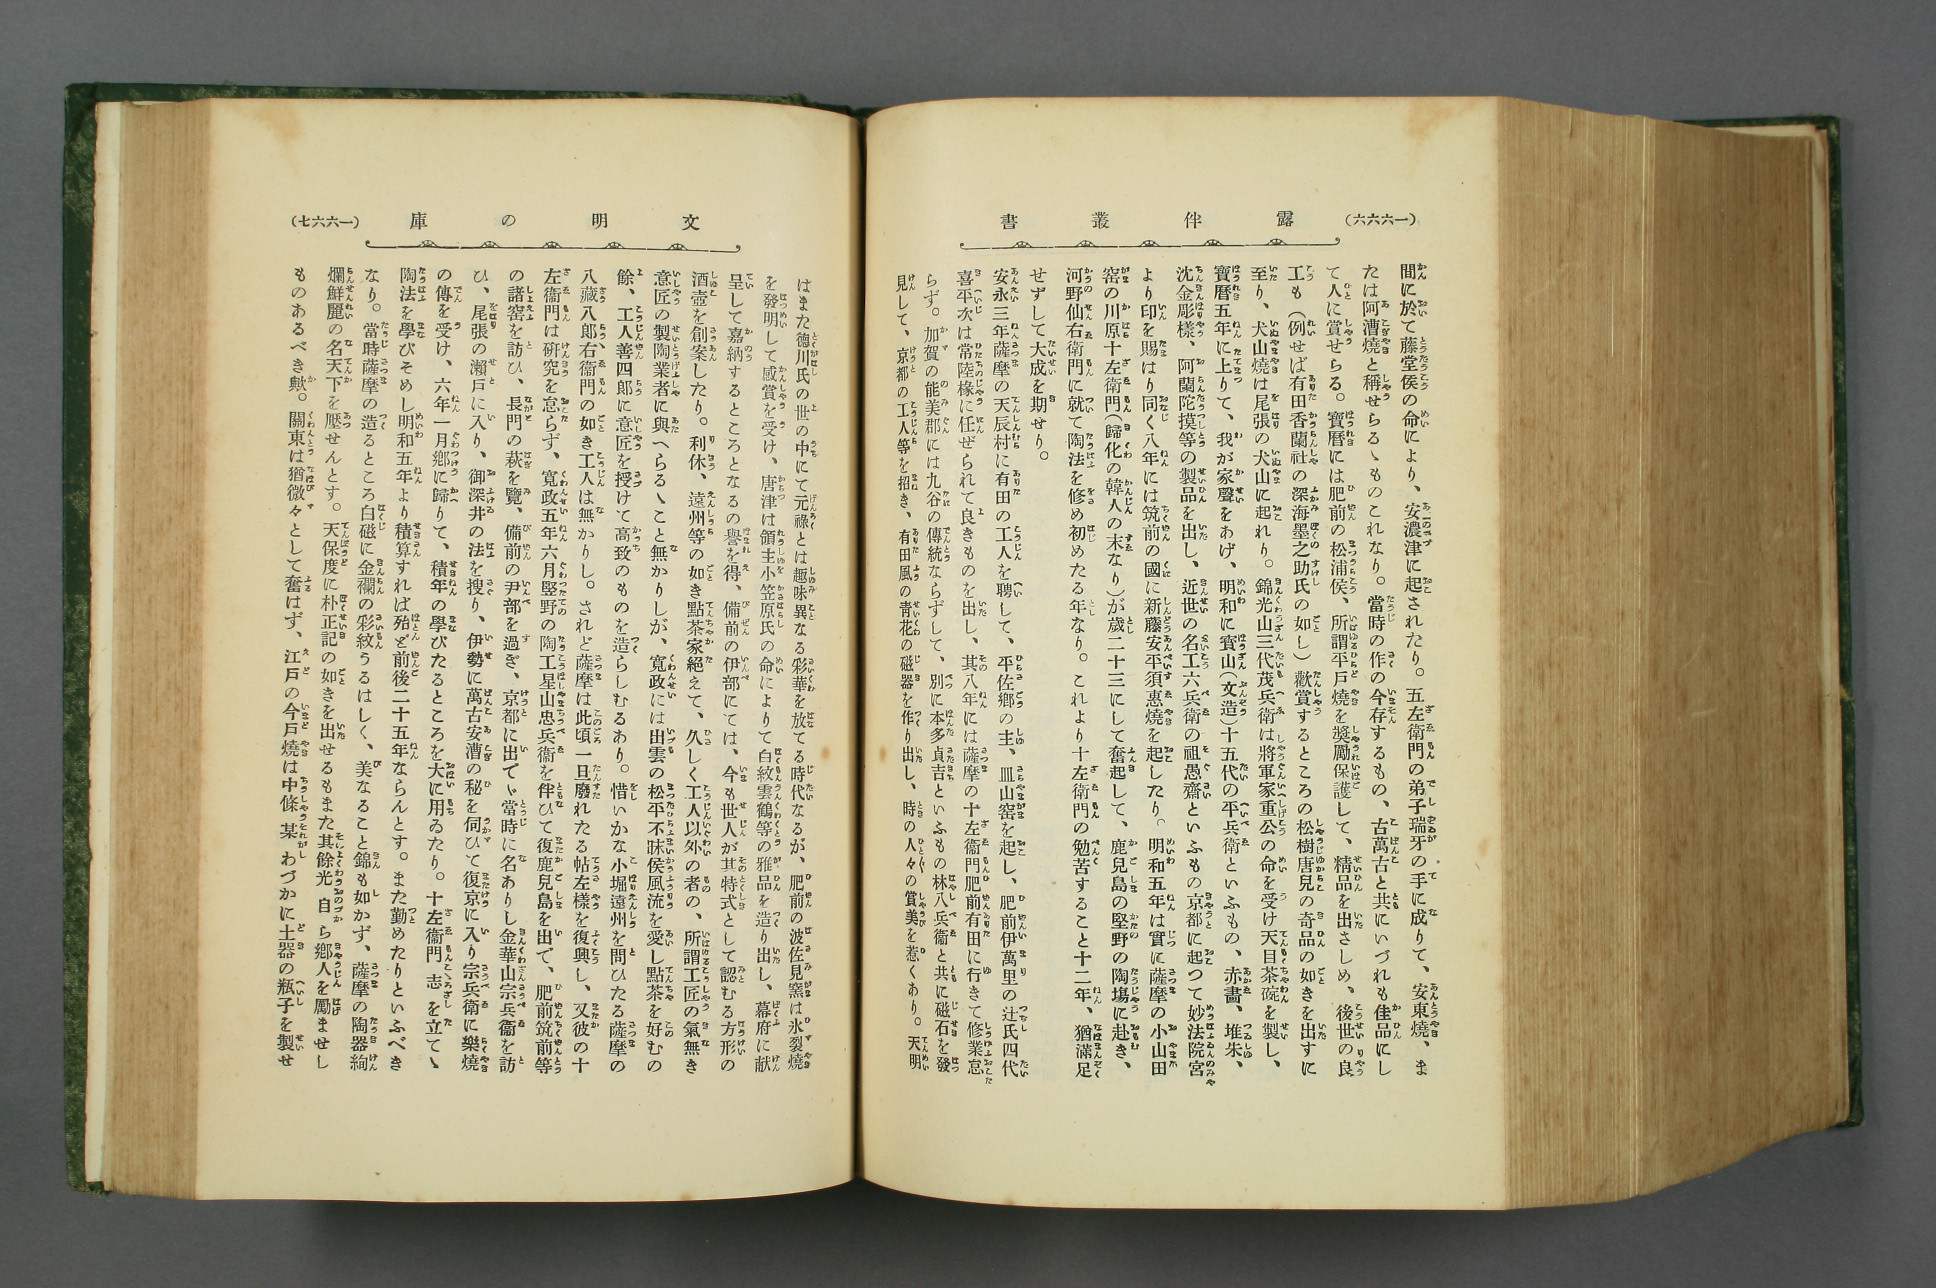 (一六六六)
露伴叢書
間に於て藤堂侯の命により、安濃津に起されたり。五左衛門の弟子瑞牙の手に成りて、安東燒、ま
たは阿漕燒と稱せらるゝものこれなり。當時の作の今存するもの、古萬古と共にいづれも佳品にし
て人に賞せらる。寶曆には肥前の松浦侯、所謂平戸燒を奬勵保護して、精品を出さしめ、後世の良
工も(例せば有田香蘭社の深海墨之助氏の如し)歡賞するところの松樹唐兒の奇品の如きを出すに
至り、犬山燒は尾張の犬山に起れり。錦光山三代茂兵衛は將軍家重公の命を受け天目茶碗を製し、
寶曆五年に上りて、我が家聲をあげ、明和に寶山(文造)十五代の平兵衛といふもの、赤畵、堆朱、
沈金彫樣、阿蘭陀摸等の製品を出し、近世の名工六兵衛の祖愚齋といふもの京都に起つて妙法院宮
より印を賜はり同く八年には筑前の國に新藤安平須惠燒を起したり。明和五年は實に薩摩の小山田
窑の川原十左衛門(歸化の韓人の末なり)が歲二十三にして奮起して、鹿兒島の堅野の陶塲に赴き、
河野仙右衛門に就て陶法を修め初めたる年なり。これより十左衛門の勉苦すること十二年、猶滿足
せずして大成を期せり。
安永三年薩摩の天辰村に有田の工人を聘して、平佐鄉の主、皿山窑を起し、肥前伊萬里の辻氏四代
喜平次は常陸椽に任ぜられて良きものを出し、其八年には薩摩の十左衞門肥前有田に行きて修業怠
らず。加賀の能美郡には九谷の傳統ならずして、別に本多貞吉といふもの林八兵衞と共に磁石を發
見して、京都の工人等を招き、有田風の青花の磁器を作り出し、時の人々の賞美を惹くあり。天明
(一六六七)
文明の庫
はまた德川氏の世の中にて元祿とは趣味異なる彩華を放てる時代なるが、肥前の波佐見窯は氷裂燒
を發明して感賞を受け、唐津は領主小笠原氏の命によりて白紋雲鶴等の雅品を造り出し、幕府に献
呈して嘉納するところとなるの譽を得、備前の伊部にては、今も世人が其特式として認むる方形の
酒壺を創案したり。利休、遠州等の如き點茶家絕えて、久しく工人以外の者の、所謂工匠の氣無き
意匠の製陶業者に與へらるゝこと無かりしが、寬政には出雲の松平不昧侯風流を愛し點茶を好むの
餘、工人善四郎に意匠を授けて高致のものを造らしむるあり。惜いかな小堀遠州を問ひたる薩摩の
八藏八郎右衞門の如き工人は無かりし。されど薩摩は此頃一旦廢れたる帖左樣を復興し、又彼の十
左衞門は硏究を怠らず、寬政五年六月堅野の陶工星山忠兵衞を伴ひて復鹿兒島を出で、肥前筑前等
の諸窑を訪ひ、長門の萩を覽、備前の尹部を過ぎ、京都に出でゝ當時に名ありし金華山宗兵衞を訪
ひ、尾張の瀨戸に入り、御深井の法を搜り、伊勢に萬古安漕の秘を伺ひて復京に入り宗兵衞に樂燒
の傳を受け、六年一月鄕に歸りて、積年の學びたるところを大に用ゐたり。十左衞門志を立てゝ
陶法を學びそめし明和五年より積算すれば殆ど前後二十五年ならんとす。また勤めたりといふべき
なり。當時薩摩の造るところ白磁に金襴の彩紋うるはしく、美なること錦も如かず、薩摩の陶器絢
爛鮮麗の名天下を壓せんとす。天保度に朴正記の如きを出せるもまた其餘光自ら鄕人を勵ませし
ものあるべき歟。關東は猶微々として奮はず、江戸の今戸燒は中條某わづかに土器の瓶子を製せ